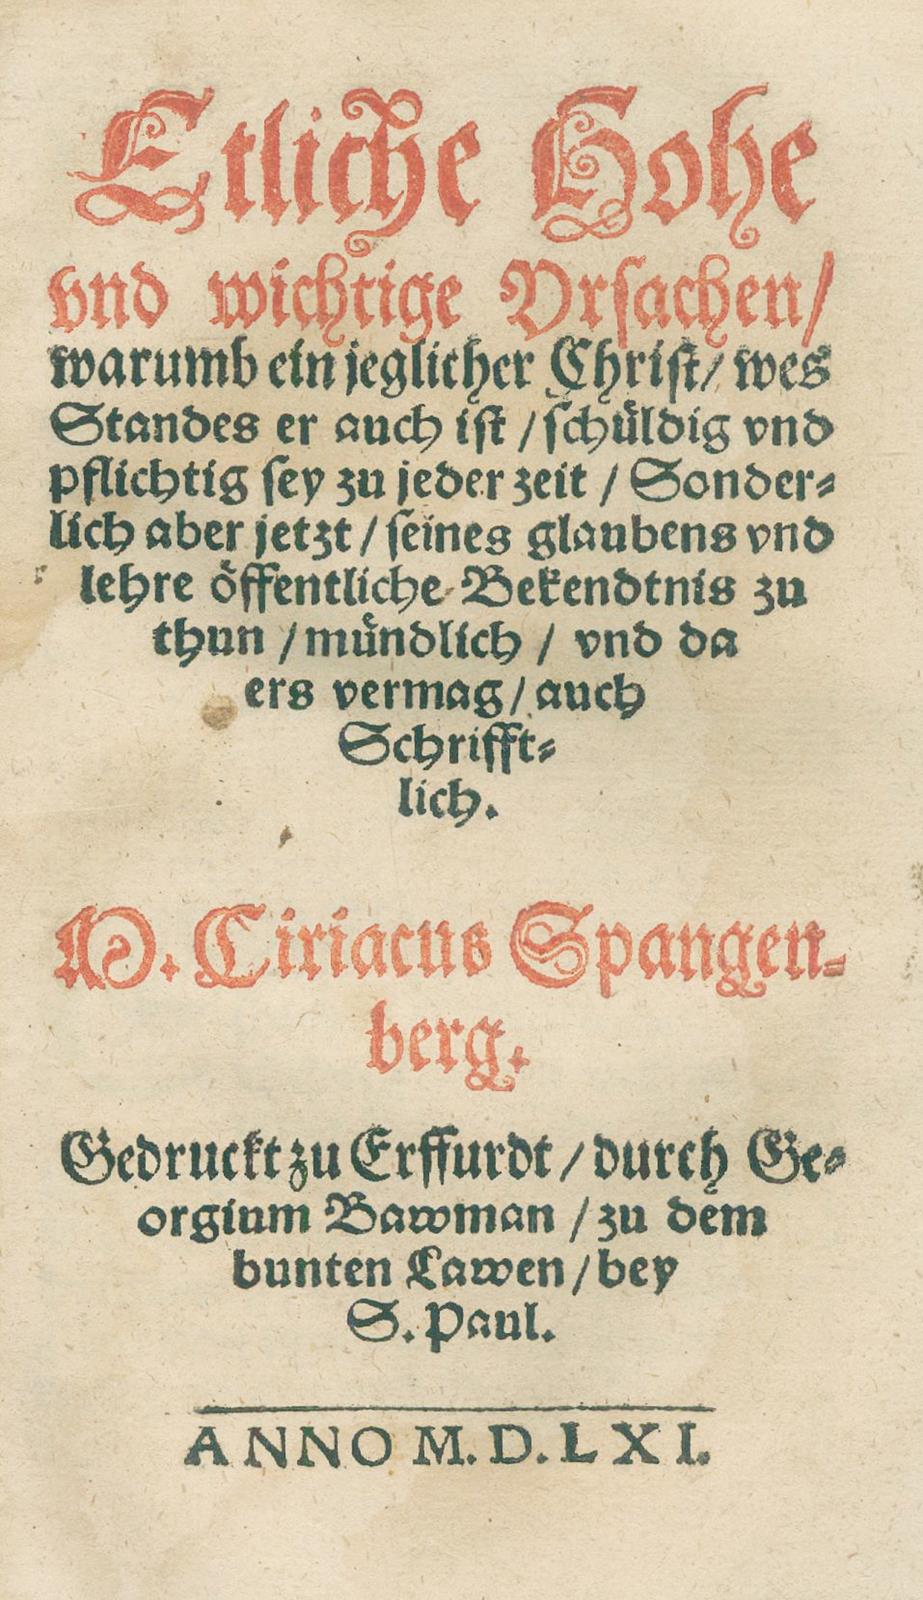 Etliche Hohe
vnd wichtige Vrſachen/
warumb ein jeglicher Chriſt/ wes
Standes er auch iſt / ſchuͤldig vnd
pflichtig ſey zu jeder zeit / Sonder⸗
lich aber jetzt / ſeines glaubens vnd
lehre oͤffentliche Bekendtnis zu
thun / muͤndlich / vnd da
ers vermag / auch
Schrifft⸗
lich.
M. Ciriacus Spangen⸗
berg.
Gedruckt zu Erffurdt / durch Ge⸗
orgium Bawman / zu dem
bunten Lawen / bey
S. Paul.
ANNO M. D. LXI.